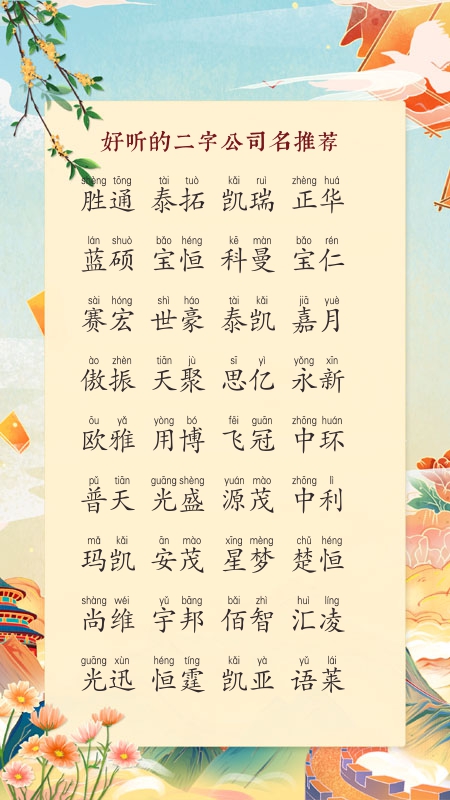 好听的二字公司名推荐
shèng tōng tài tuò kǎi ruì zhèng huá
胜通 泰拓 凯瑞 正华
lán shuò bǎo héng kē màn bǎo rén
蓝硕 宝恒 科曼 宝仁
sài hóng shì háo tài kǎi jiā yuè
赛宏 世豪 泰凯 嘉月
ào zhèn tiān jù sī yì yǒng xīn
傲振 天聚 思亿 永新
ōu yǎ yòng bó fēi guān zhōng huán
欧雅 用博 飞冠 中环
pǔ tiān guāng shèng yuán mào zhōng lì
普天 光盛 源茂 中利
mǎ kǎi ān mào xīng mèng chǔ héng
玛凯 安茂 星梦 楚恒
shàng wéi yǔ bāng bǎi zhì huì líng
尚维 宇邦 佰智 汇凌
guāng xùn héng tíng kǎi yà yǔ lái
光迅 恒霆 凯亚 语莱